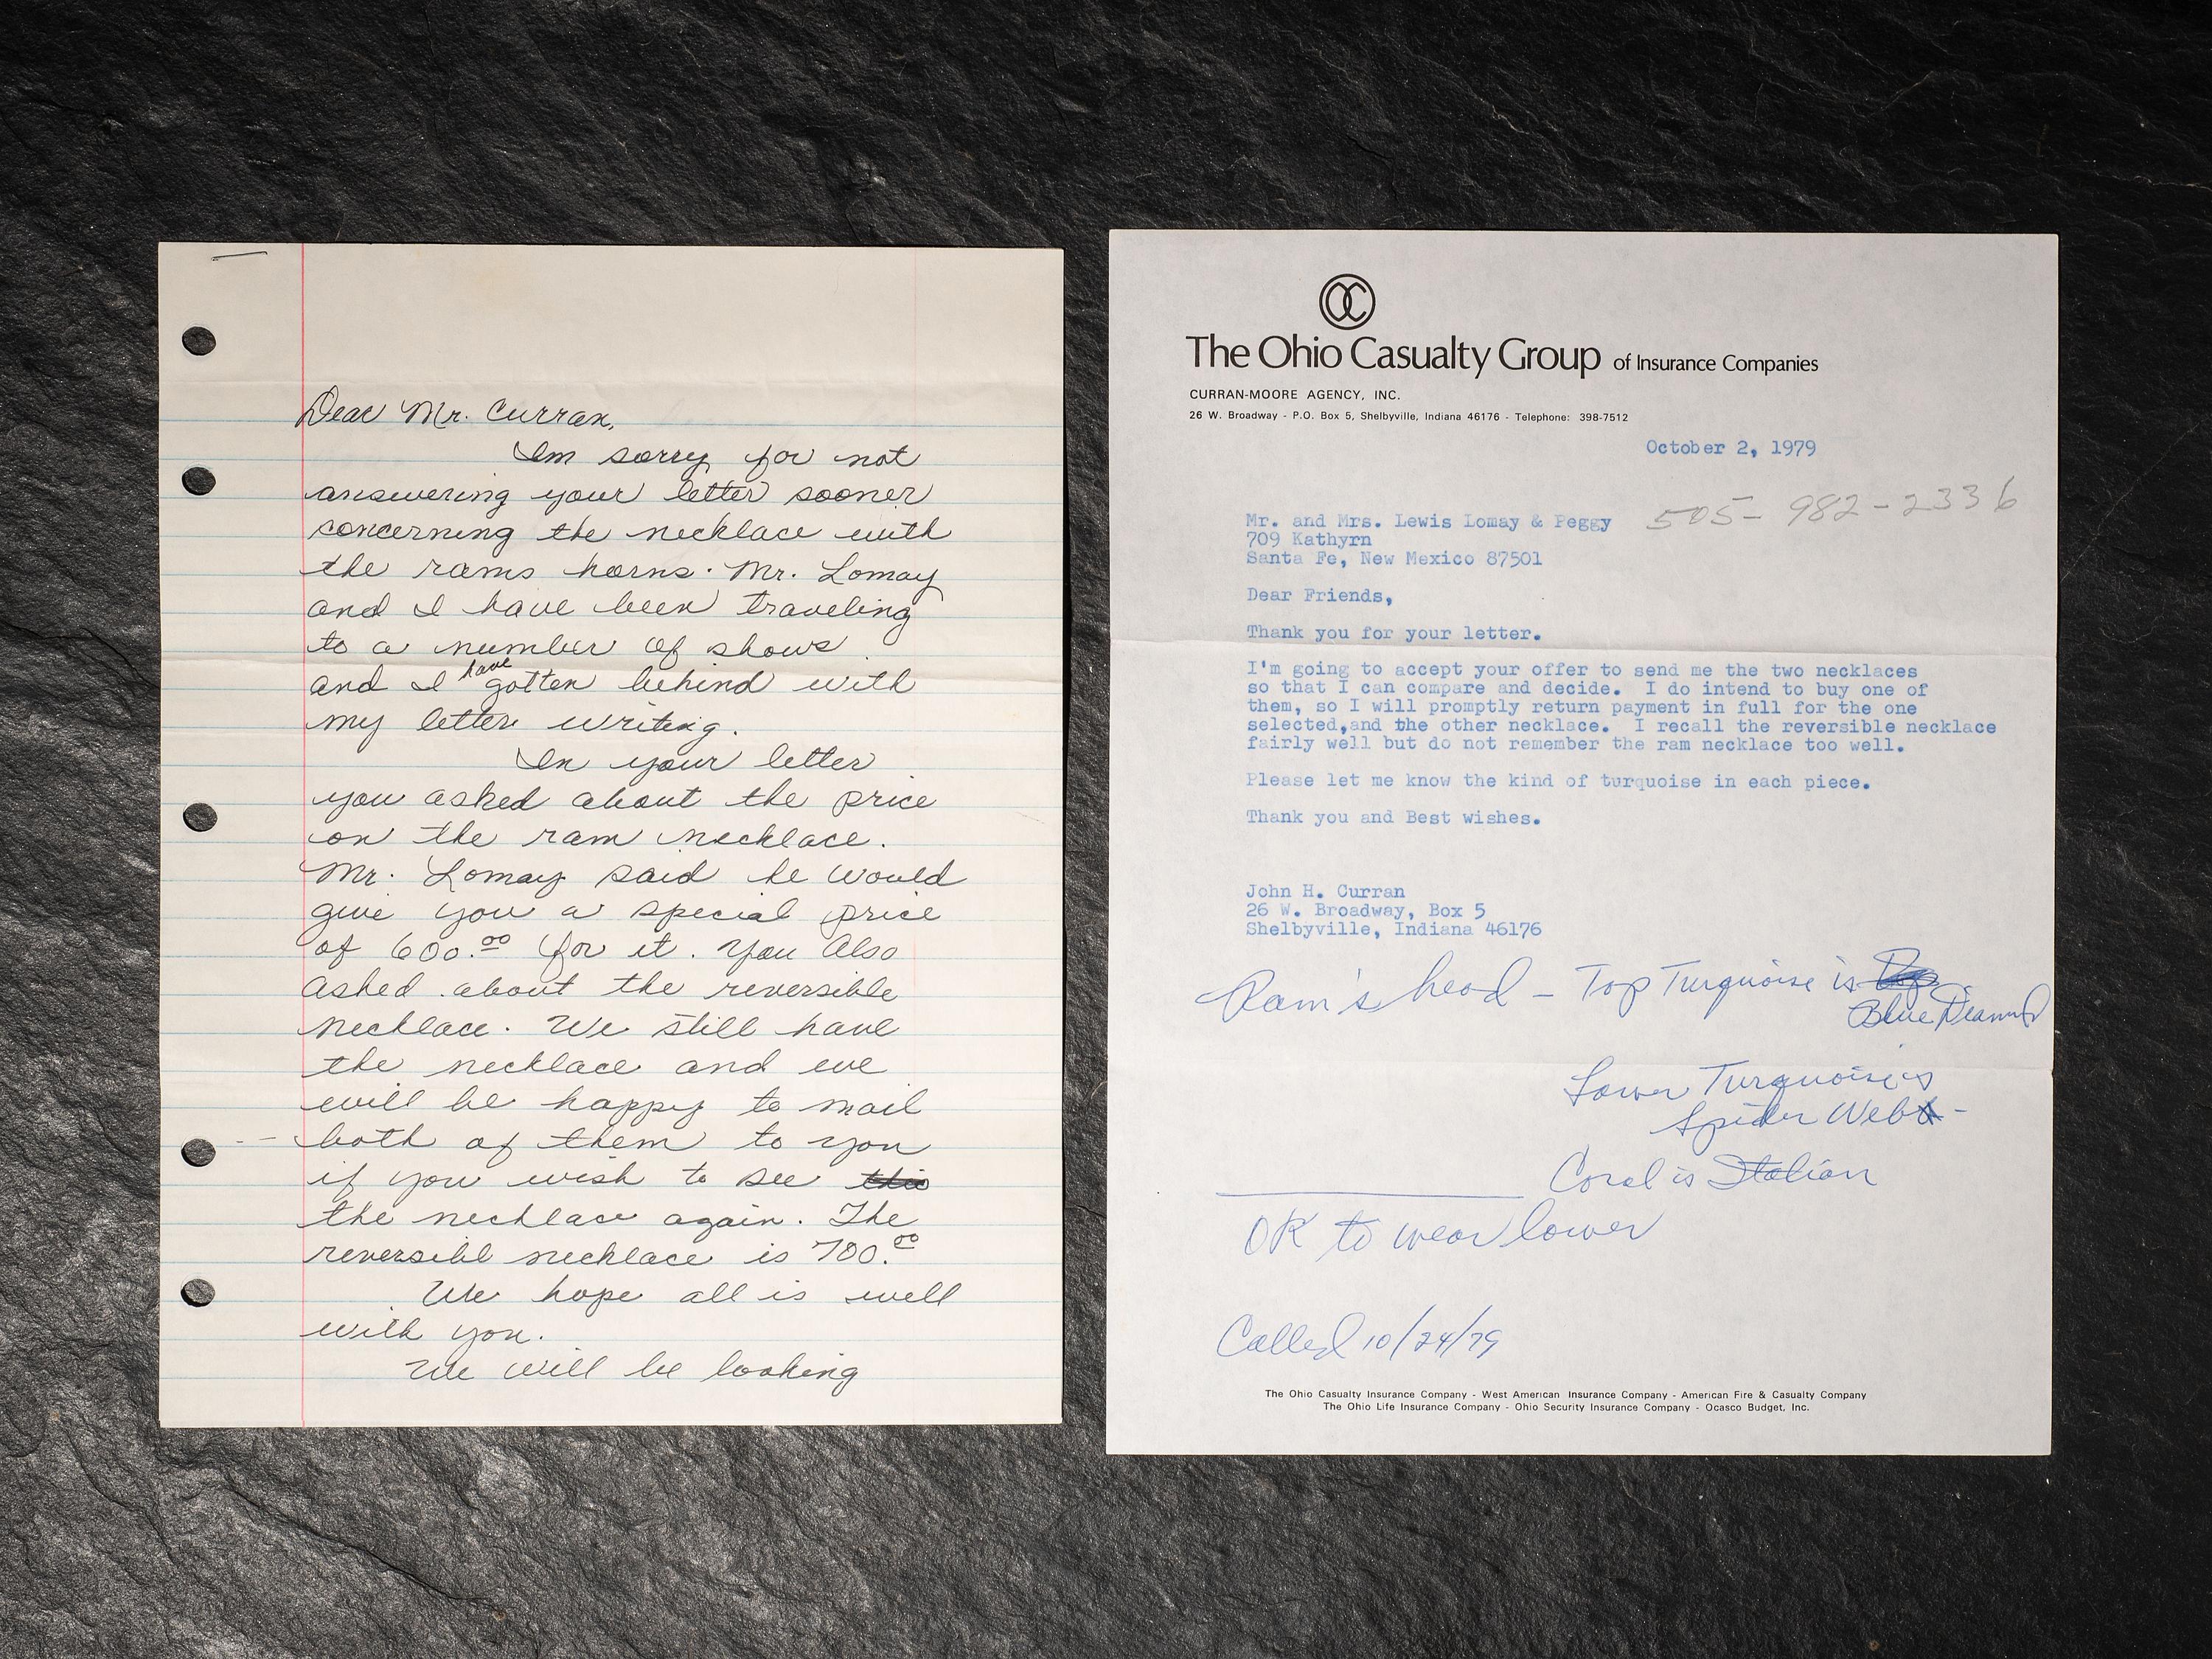 Dear Mr. Curran,
Im sorry for not
answering your letter sooner
concerning the necklace with
the rams horns. Mr. Lomay
and I have been traveling
to a number of shows
and I have gotten behind with
my letter writing.
In your letter
you asked about the price
on the ram necklace.
Mr. Lomay said he would
give you a special price
of 600.00 for it. You Also
asked about the reversible
necklace. We still have
the necklace and we
will be happy to mail
both of them to you
if you wish to see this
the necklace again. The
reversibl necklace is 700.00
We hope all is well
with you.
We will be looking
The Ohio Casualty Group of Insurance Companies
CURRAN-MOORE AGENCY, INC.
26 W. Broadway - P.O. Box 5, Shelbyville, Indiana 46176 - Telephone: 398-7512
October 2, 1979
505-982-2336
Mr. and Mrs. Lewis Lomay & Peggy
709 Kathyrn
Santa Fe, New Mexico 87501
Dear Friends,
Thank you for your letter.
I'm going to accept your offer to send me the two necklaces
so that I can compare and decide. I do intend to buy one of
them, so I will promptly return payment in full for the one
selected,and the other necklace. I recall the reversible necklace
fairly well but do not remember the ram necklace too well.
Please let me know the kind of turquoise in each piece.
Thank you and Best wishes.
John H. Curran
26 W. Broadway, Box 5
Shelbyville, Indiana 46176
Ram's head - Top Turquoise is
Blue Diamond
Lower Turquoise is
Spider Web -
Coral is Italian
OK to wear lower
Called 10/24/79
The Ohio Casualty Insurance Company - West American Insurance Company - American Fire & Casualty Company
The Ohio Life Insurance Company - Ohio Security Insurance Company - Ocasco Budget, Inc.